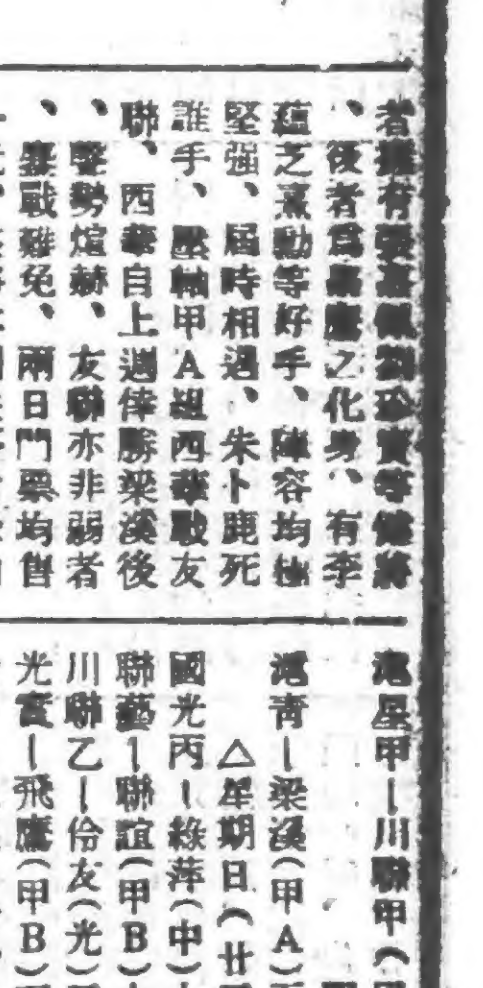 者擁有張嘉夔劉珍寶等健將
、後者爲黑鷹之化身、有李
蘊之薰勳等好手、陣容均極
堅强、屆時相遇、朱卜鹿死
誰手、壓軸甲A組西華戰友
聯、西華自上週倖勝梁溪後
、聲勢煊赫、友聯亦非弱者
、鏖戰難免、兩日門票均售
滬星甲—川聯甲（
滬青—梁溪（甲A）
△星期日（廿
國光丙—綠萍（中）
聯藝—聯誼（甲B）
川聯乙—伶友（光）
光實—飛鷹（甲B）